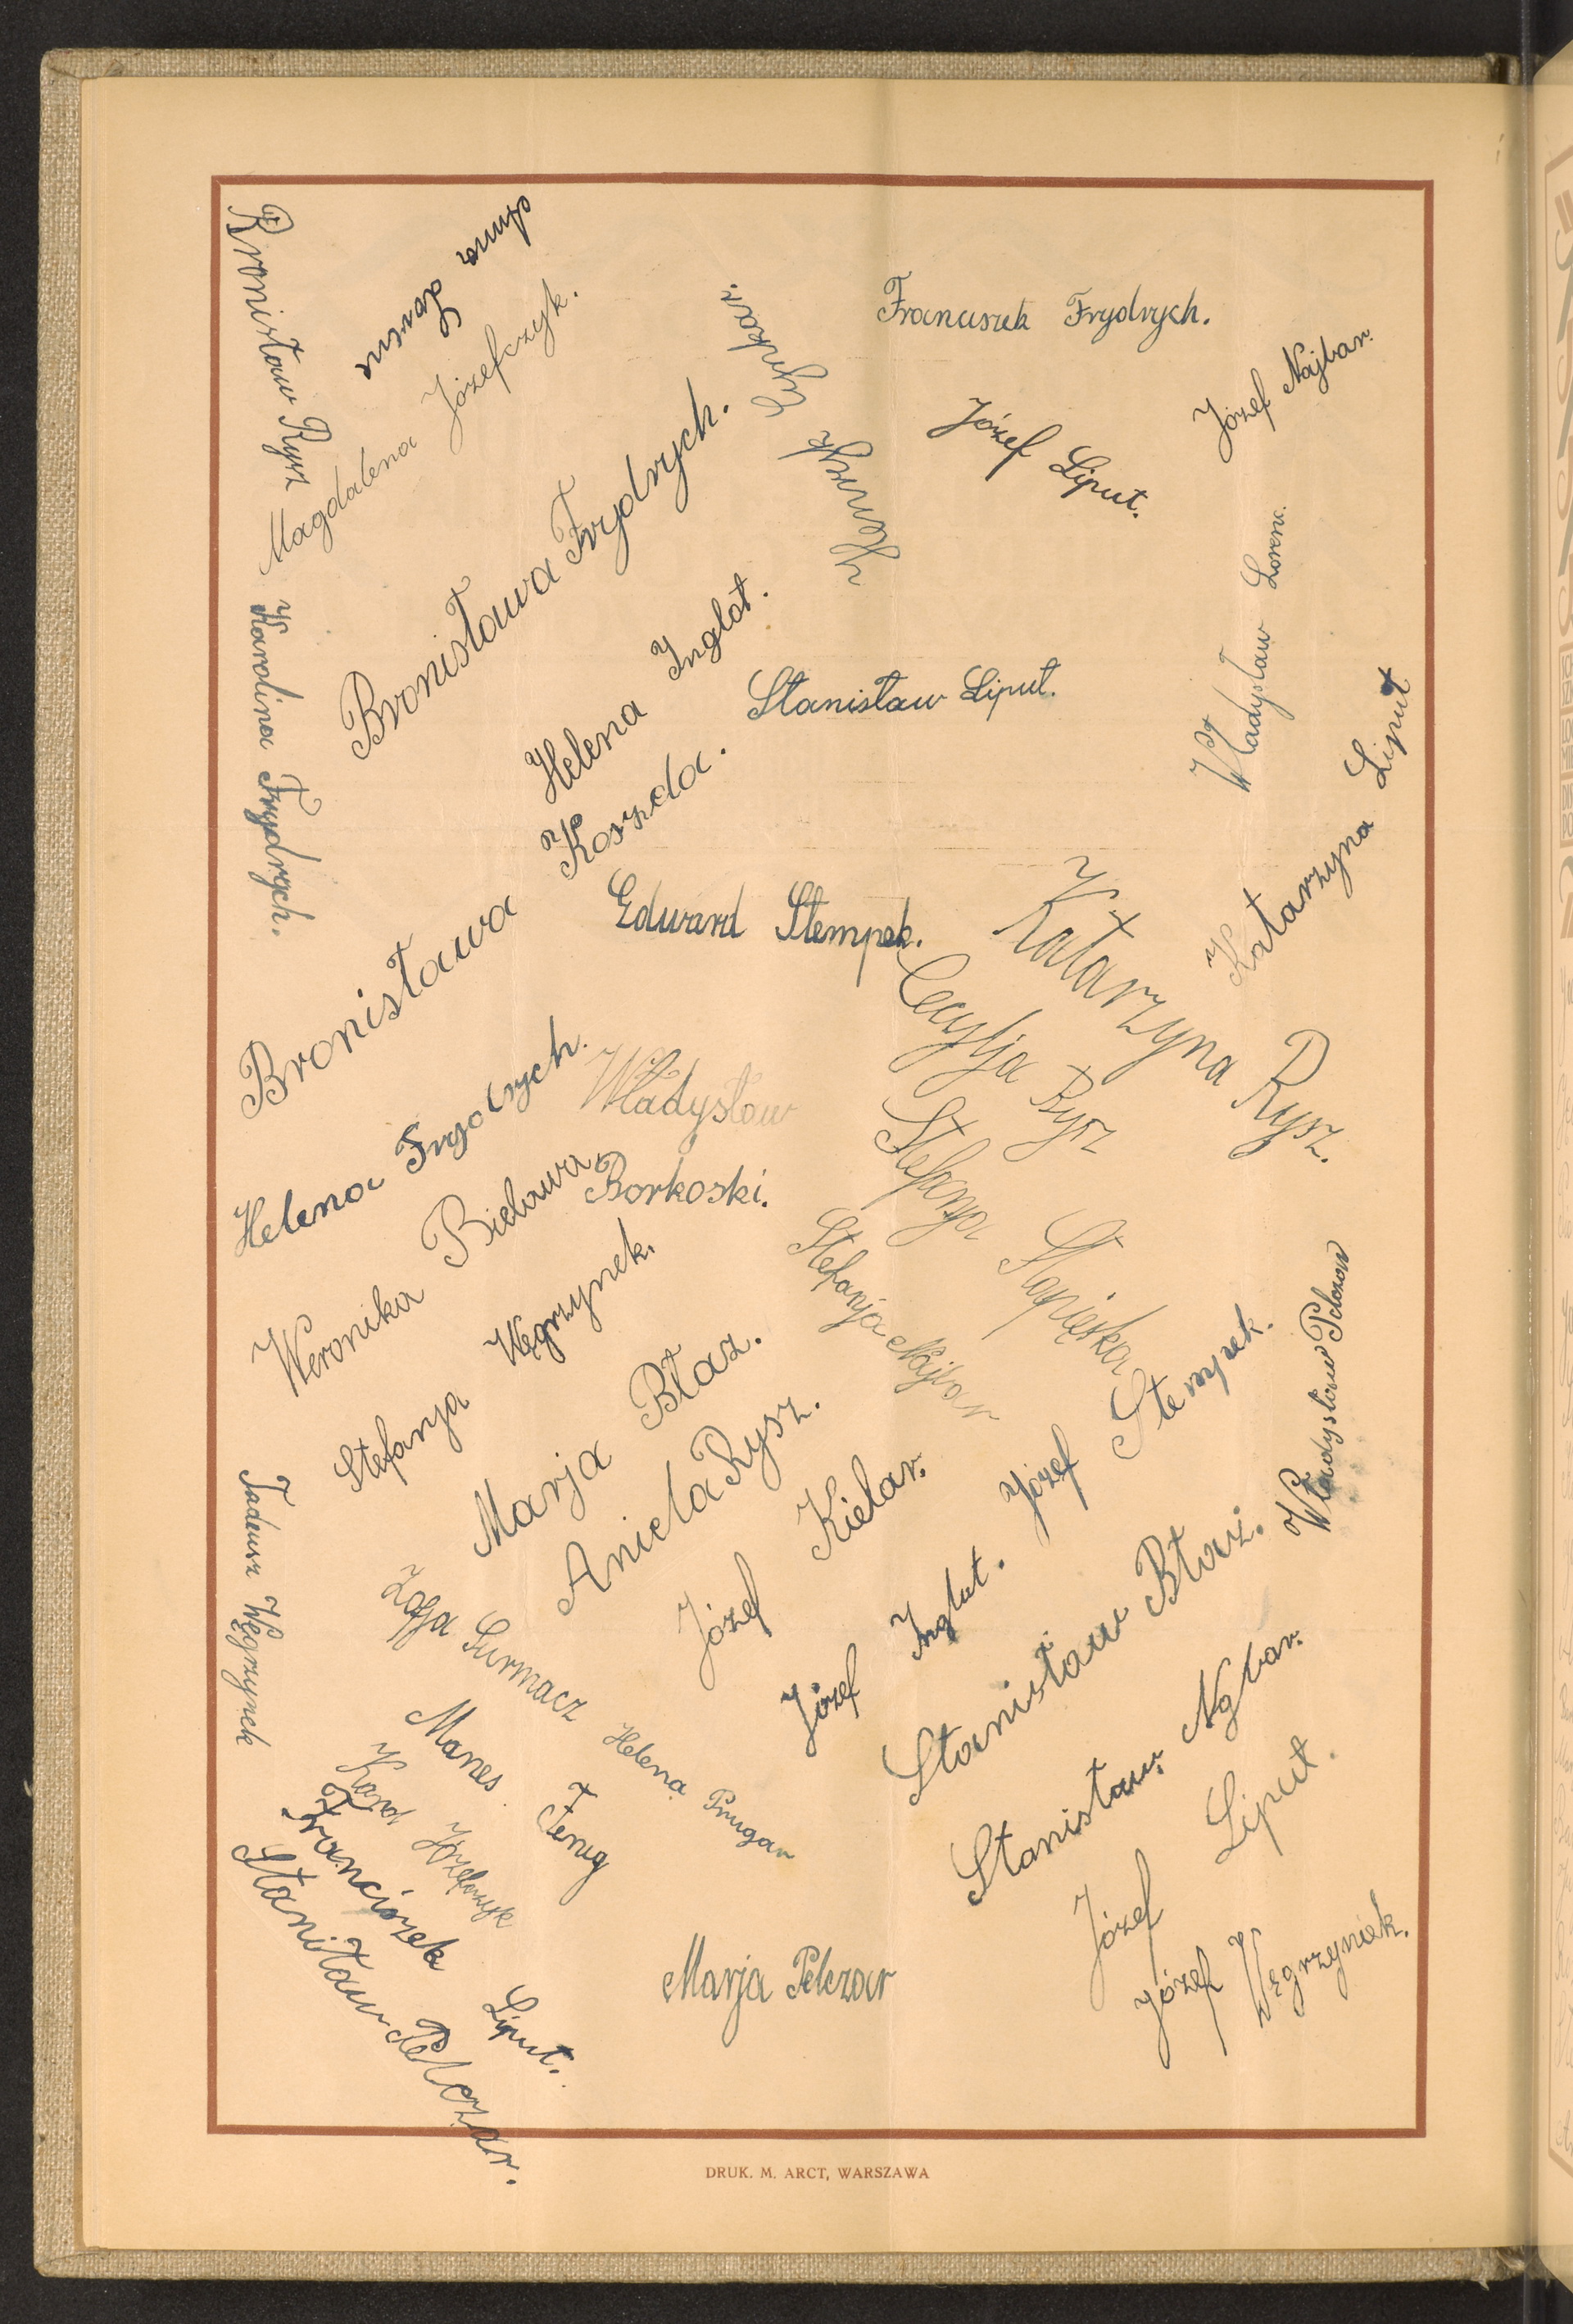 Bronisław Rysz
Anna Lorenc
Magdalena Józefczyk.
Franciszek Frydrych.
Józef Najbar.
Józef Liput.
Henryk Cząpkar.
Bronisława Frydrych.
Karolina Frydrych.
Helena Inglot.
Stanisław Liput.
Władysław Lorenc.
Katarzyna Liput
Bronisława Koszda.
Edward Stempek.
Katarzyna Rysz.
Cecylja Rysz
Helena Frydrych.
Władysław
Borkoski.
Weronika Bielawa
Stefanja Stapińska
Stefanja Najbar
Stefanja Węgrzynek.
Władysław Pelczar
Józef Stempek.
Marja Błaż.
Aniela Rysz.
Józef Kielar.
Tadeusz Węgrzynek
Zofja Surmacz
Józef Inglot.
Stanisław Błaż.
Stanisław Najbar.
Helena Prugar
Manes Fenig
Karol Józefczyk
Franciszek Liput.
Stanisław Pelczar.
Józef Liput.
Józef Węgrzyniek.
Marja Pelczar
DRUK. M. ARCT, WARSZAWA